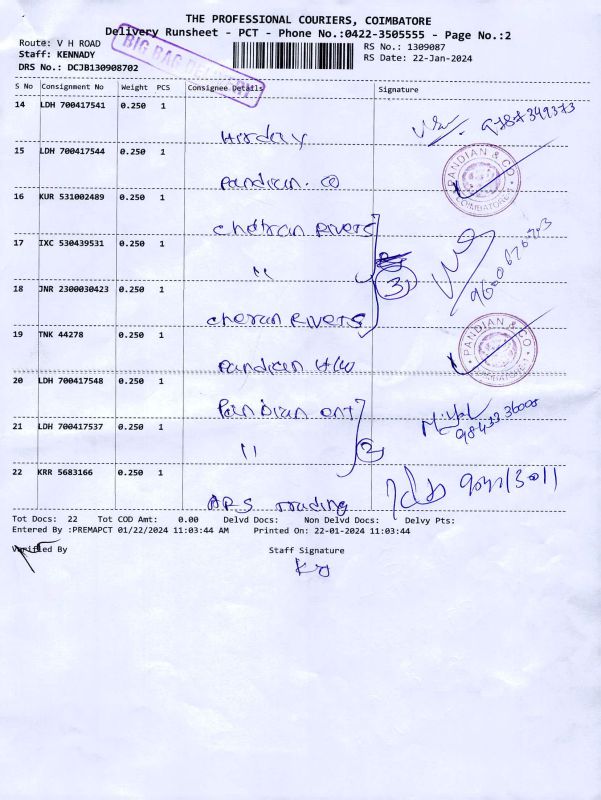 THE PROFESSIONAL COURIERS, COIMBATORE
Delivery Runsheet - PCT - Phone No.:0422-3505555 - Page No.:2
Route: V H ROAD
RS No.: 1309087
Staff: KENNADY
RS Date: 22-Jan-2024
DRS No.: DCJB130908702
BIG BAG DELIVERY
S No Consignment No Weight PCS Consignee Details Signature
14 LDH 700417541 0.250 1
15 LDH 700417544 0.250 1 Pandian. Co
PANDIAN & CO COIMBATORE-1
16 KUR 531002489 0.250 1 Rivers
17 IXC 530439531 0.250 1 "
3
18 JNR 2300030423 0.250 1 Cheran Rivers
19 TNK 44278 0.250 1 Pandian H/W
PANDIAN & CO COIMBATORE-1
20 LDH 700417548 0.250 1 Pandian ent
21 LDH 700417537 0.250 1 "
2
22 KRR 5683166 0.250 1 ARS Trading
Tot Docs: 22 Tot COD Amt: 0.00 Delvd Docs: Non Delvd Docs: Delvy Pts:
Entered By :PREMAPCT 01/22/2024 11:03:44 AM Printed On: 22-01-2024 11:03:44
Verified By Staff Signature